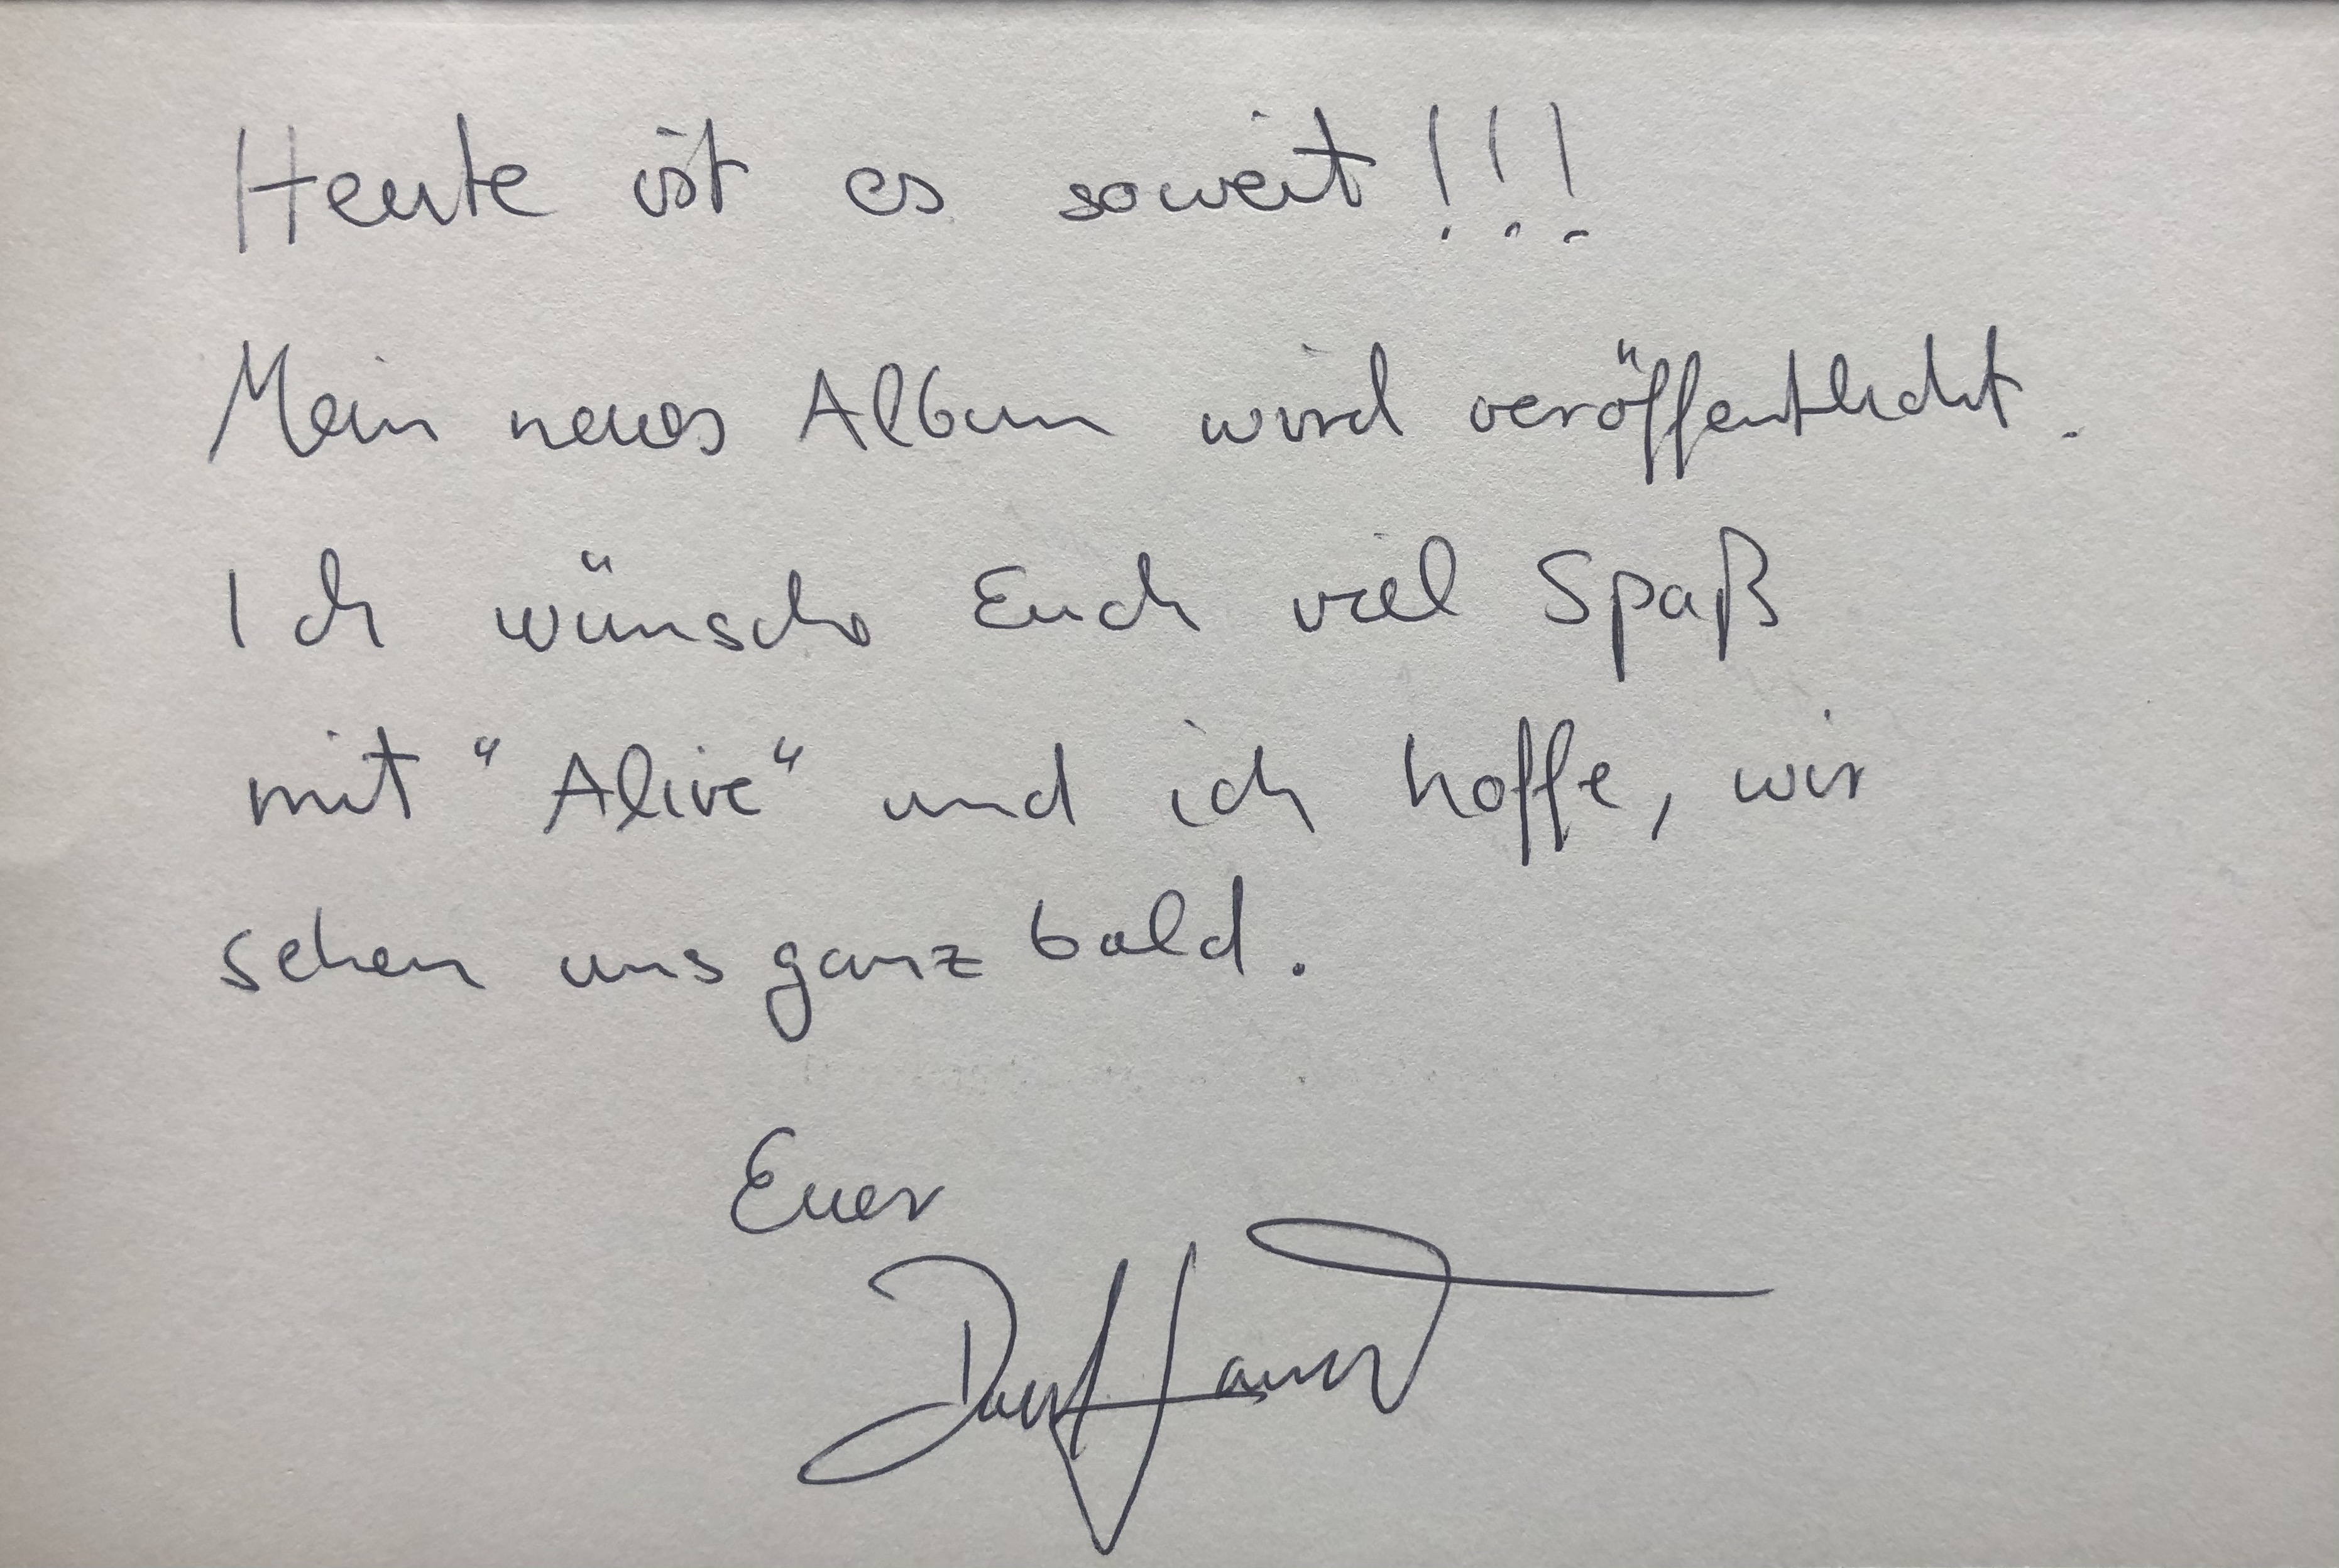 Heute ist es soweit!!!
Mein neues Album wird veröffentlicht.
Ich wünsche Euch viel Spaß
mit "Alive" und ich hoffe, wir
sehen uns ganz bald.
Euer